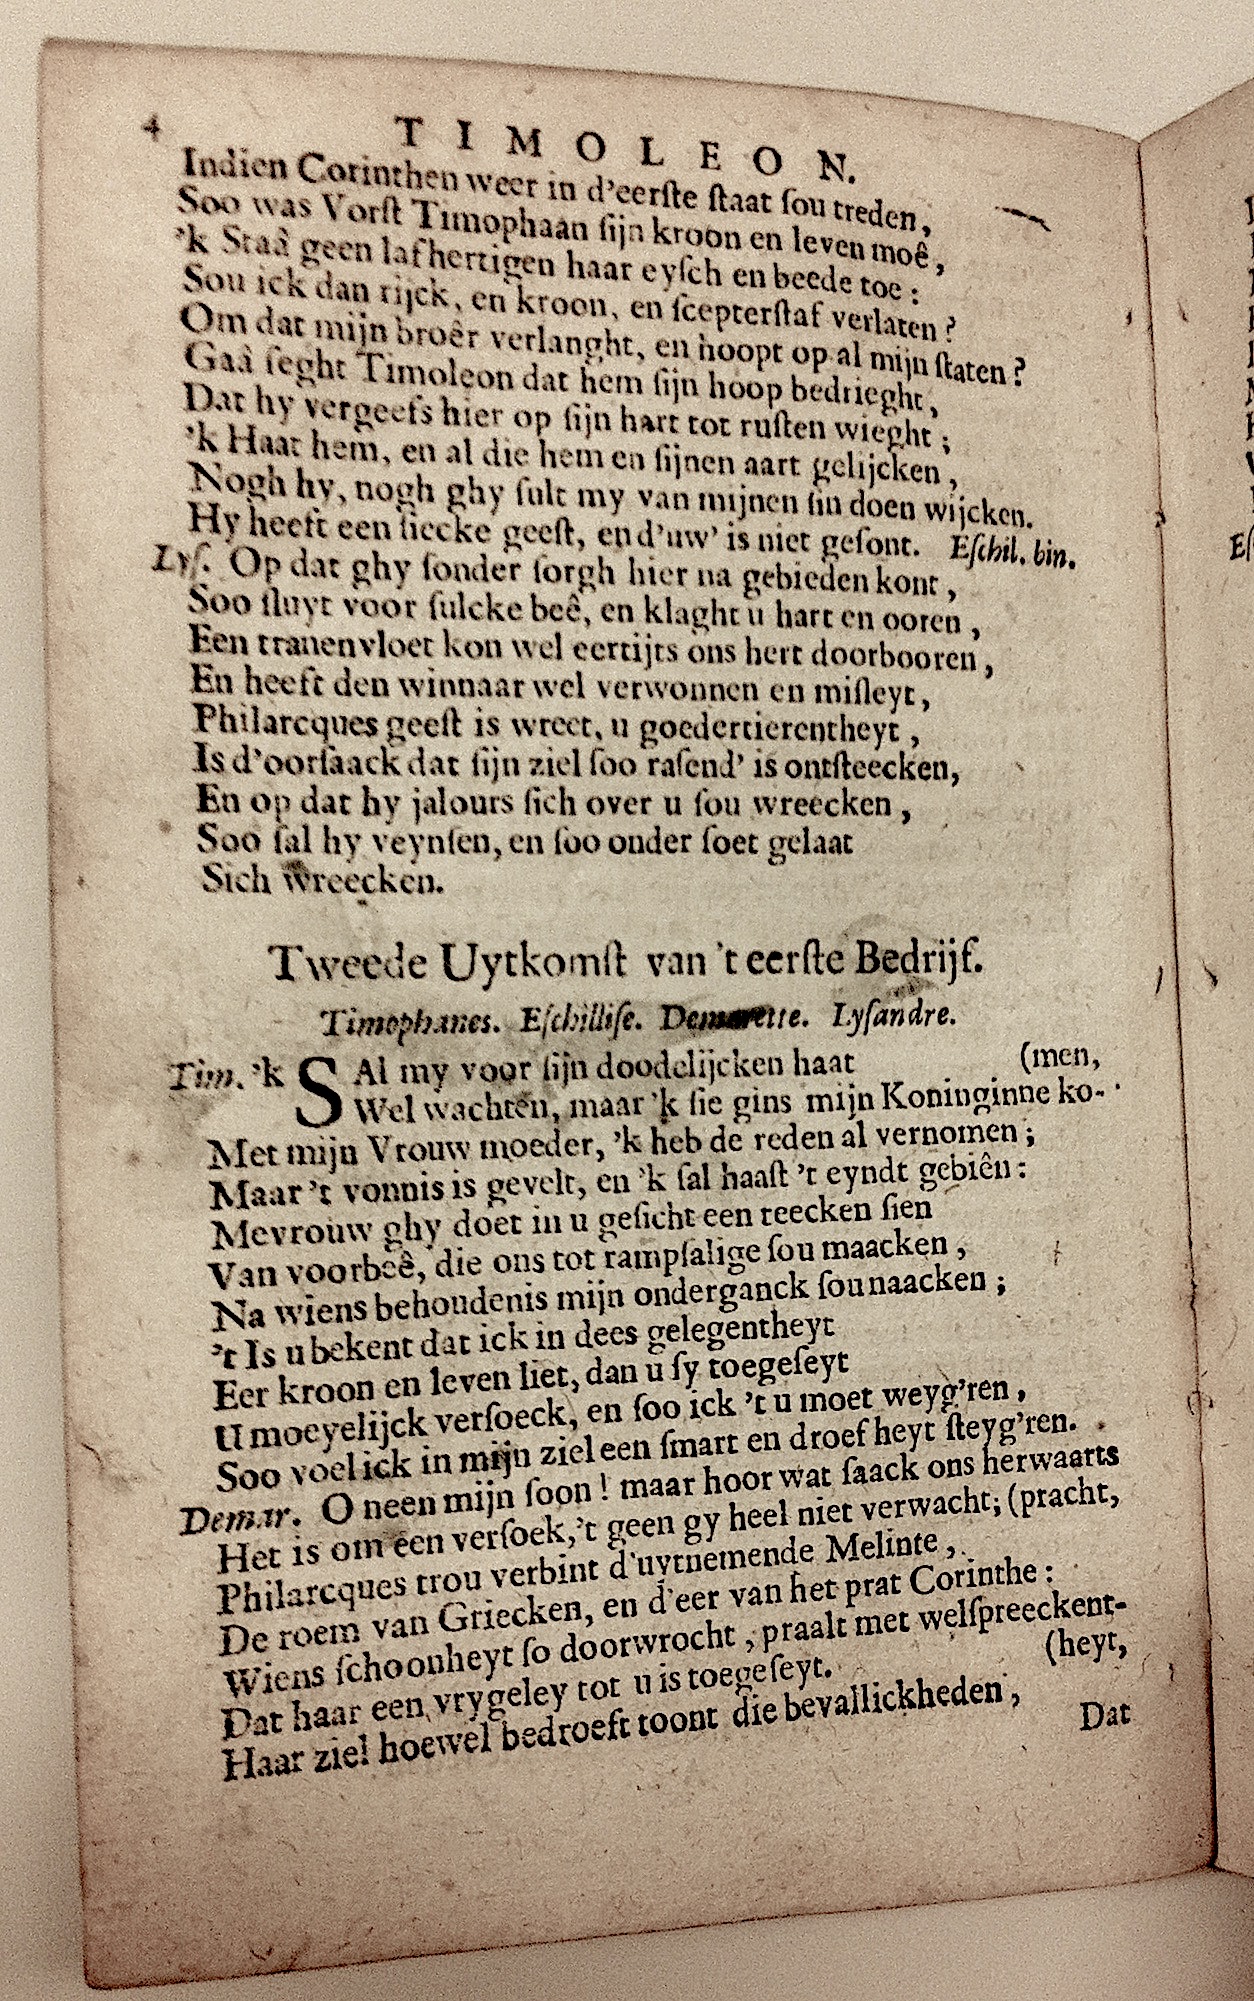 4
TIMOLEON.
Indien Corinthen weer in d'eerſte ſtaat ſou treden,
Soo was Vorſt Timophaan ſijn kroon en leven moê,
'k Staâ geen lafhertigen haar eyſch en beede toe:
Sou ick dan rijck, en kroon, en ſcepterſtaf verlaten?
Om dat mijn broêr verlanght, en hoopt op al mijn ſtaten?
Gaâ ſeght Timoleon dat hem ſijn hoop bedrieght,
Dat hy vergeefs hier op ſijn hart tot ruſten wieght;
'k Haat hem, en al die hem en ſijnen aart gelijcken,
Nogh hy, nogh ghy ſult my van mijnen ſin doen wijcken.
Hy heeft een ſiecke geeſt, en d'uw' is niet geſont. Eſchil. bin.
Lyſ. Op dat ghy ſonder ſorgh hier na gebieden kont,
Soo ſluyt voor ſulcke beê, en klaght u hart en ooren,
Een tranenvloet kon wel eertijts ons hert doorbooren,
En heeft den winnaar wel verwonnen en miſleyt,
Philarcques geeſt is wreet, u goedertierentheyt,
Is d'oorſaack dat ſijn ziel ſoo raſend' is ontſteecken,
En op dat hy jalours ſich over u ſou wreecken,
Soo ſal hy veynſen, en ſoo onder ſoet gelaat
Sich wreecken.
Tweede Uytkomſt van 't eerſte Bedrijf.
Timophanes. Eſchilliſe. Demarette. Lyſandre.
Tim. 'k SAl my voor ſijn doodelijcken haat (men,
Wel wachten, maar 'k ſie gins mijn Koninginne ko-
Met mijn Vrouw moeder, 'k heb de reden al vernomen;
Maar 't vonnis is gevelt, en 'k ſal haaſt 't eyndt gebiên:
Mevrouw ghy doet in u geſicht een teecken ſien
Van voorbeê, die ons tot rampſalige ſou maacken,
Na wiens behoudenis mijn onderganck ſou naacken;
't Is u bekent dat ick in dees gelegentheyt
Eer kroon en leven liet, dan u ſy toegeſeyt
U moeyelijck verſoeck, en ſoo ick 't u moet weyg'ren,
Soo voel ick in mijn ziel een ſmart en droefheyt ſteyg'ren.
Demar. O neen mijn ſoon! maar hoor wat ſaack ons herwaarts
Het is om een verſoek, 't geen gy heel niet verwacht; (pracht,
Philarcques trou verbint d'uytnemende Melinte,
De roem van Griecken, en d'eer van het prat Corinthe:
Wiens ſchoonheyt ſo doorwrocht, praalt met welſpreeckent-
Dat haar een vrygeley tot u is toegeſeyt. (heyt,
Haar ziel hoewel bedroeft toont die bevallickheden,
Dat